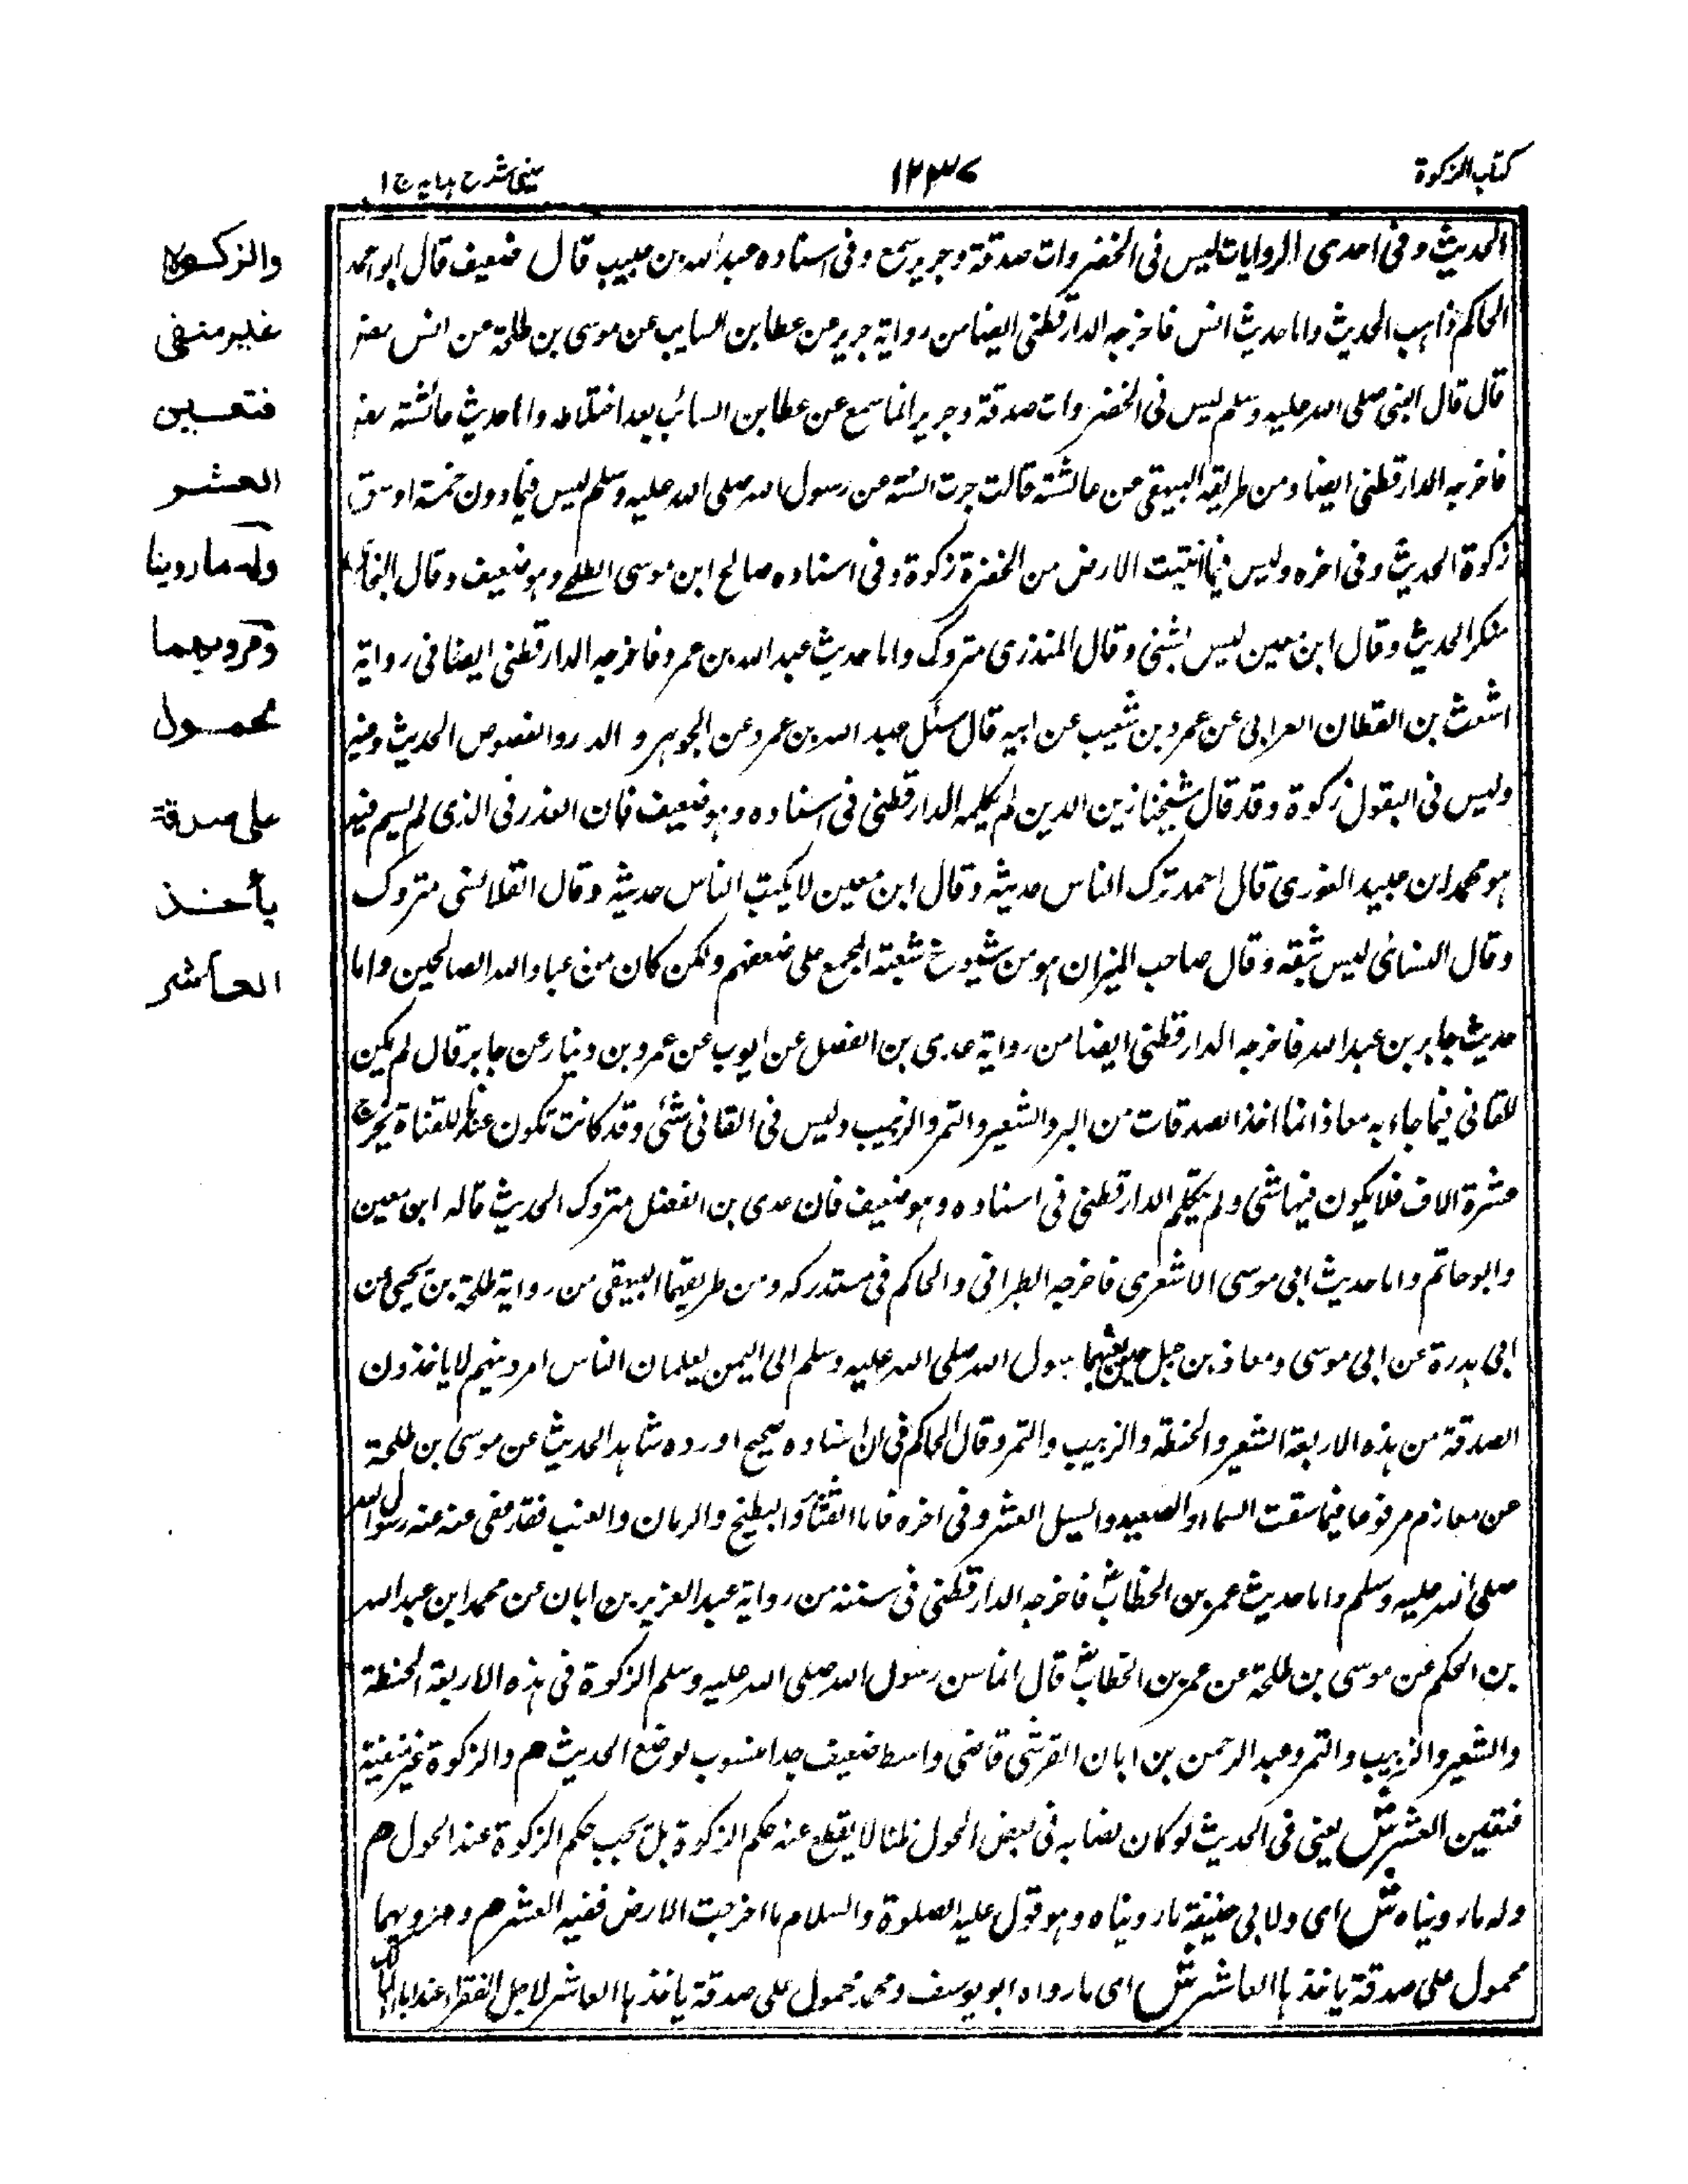 كتاب الزكوة
١٢٣٧
عينى شرح هدايه ج ١
الحديث وفى احدى الروايات ليس فى الخضروات صدقة وجرير سمع وفى اسناده عبد الله بن حبيب قال ضعيف قال ابو احمد
الحاكم ذاهب الحديث واما حديث انس فاخرجه الدارقطنى ايضا من رواية جرير عن عطا بن السايب عن موسى بن طلحة عن انس
قال قال النبى صلى الله عليه وسلم ليس فى الخضروات صدقة وجرير انما سمع عن عطا بن السائب بعد اختلاطه واما حديث عائشته
فاخرجه الدارقطنى ايضا ومن طريقه البيهقى عن عائشته قالت جرت السنة من رسول الله صلى الله عليه وسلم ليس فيما دون خمسة اوسق
زكوة الحديث وفى اخره وليس فيما انبتت الارض من الخضرة زكوة وفى اسناده صالح ابن موسى الطلحے وهو ضعيف وقال
منكر الحديث وقال ابن معين ليس بشئى وقال المنذرى متروك واما حديث عبد الله بن عمرو فاخرجه الدارقطنى ايضا فى رواية
اشعث بن القطان العرابى عن عمرو بن شعيب عن ابيه قال سئل عبد الله بن عمرو عن الجوهر و الدر والفصوص الحديث وفيه
وليس فى البقول زكوة وقد قال شيخنا زين الدين لم يكلمه الدارقطنى فى اسناده وهو ضعيف فان العذر فى الذى لم يسم فيه
هو محمد ان عبيد العورى قال احمد ترك الناس حديثه وقال ابن معين لا يكتب الناس حديثه وقال الفلانسى متروك
وقال النسائى ليس بثقه وقال صاحب الميزان هو من شيوخ شعبته المجمع على ضعفهم ولكن كان من عباد الله الصالحين واما
حديث جابر بن عبد الله فاخرجه الدارقطنى ايضا من رواية عدى بن الفضل عن ايوب عن عمرو بن دينار عن جابر قال لم يكن
للقانى فيما جاء به معاذ انما اخذ الصدقات من البر والشعير والتمر والزبيب وليس فى القانى شئى وقد كانت تكون عندنا للقناة تخرج
عشرة الاف فلا يكون فيها شئى ولم يتكلم الدارقطنى فى اسناده وهو ضعيف فان عدى بن الفضل متروك الحديث قاله ابن معين
وابو حاتم واما حديث ابى موسى الاشعرى فاخرجه الطبرانى والحاكم فى مستدركه ومن طريقهما البيهقى من رواية طلحة بن يحيى عن
ابى بدرة عن ابى موسى ومعاذ بن جبل حين بعثهما رسول الله صلى الله عليه وسلم الى اليمن يعلمان الناس امر دينهم لا ياخذون
الصدقة من هذه الاربعة الشعير والحنطه والزبيب والتمر وقال الحاكم فى ان اسناده صحيح اورده شاهد الحديث عن موسى بن طلحة
عن معاز م مرفوعا فيما سقت السماء او الصعيد والسيل العشر وفى اخره فاما القثاء والبطيخ والرمان والعنب فقد عفى عنه رسول الله
صلى الله عليه وسلم واما حديث عمر بن الخطاب فاخرجه الدارقطنى فى سننه من رواية عبد العزيز بن ابان عن محمد ابن عبد الله
بن الحكم عن موسى بن طلحة عن عمر بن الخطاب قال انما سن رسول الله صلى الله عليه وسلم الزكوة فى هذه الاربعة الحنطة
والشعير والزبيب والتمر وعبد الرحمن بن ابان القرشى قاضى واسط ضعيف جدا منسوب لوضع الحديث م والزكوة غير منفية
فتعين العشر ش يعنى فى الحديث لو كان نصابه فى بعض الحول ظنا لا يقطع عنه حكم الزكوة بل يجب حكم الزكوة عند الحول م
وله ما رويناه ش اى ولابى حنيفة ما رويناه وهو قول عليه الصلوة والسلام ما اخرجت الارض ففيه العشر م ومرويهما
محمول على صدقة ياخذها العاشر ش اى ما رواه ابو يوسف ومحمد محمول على صدقة ياخذها العاشر لاجل الفقراء عند
والزكوة
غير منفى
فتعين
العشر
وله ما روينا
ومرويهما
محمول
على صدقة
يأخذ
العاشر